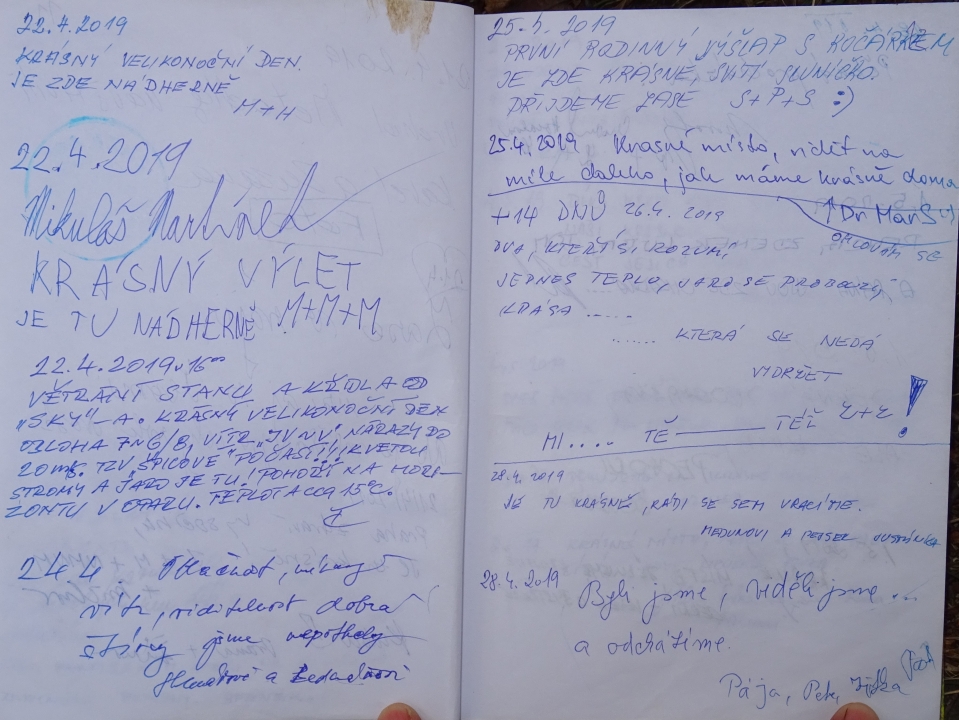 22.4.2019
KRÁSNÝ VELIKONOČNÍ DEN.
JE ZDE NÁDHERNĚ
M+H
22.4.2019
Mikuláš
KRÁSNÝ VÝLET
JE TU NÁDHERNĚ M+M+M
22.4.2019 v 16⁰⁰
VĚTRÁNÍ STANU A KŘÍDLA OD
"SKY"-A. KRÁSNÝ VELIKONOČNÍ DEN
OBLOHA 7N6/8, VÍTR "JV NV", NÁRAZY DO
20 TZV "ŠPICOVÉ" POČASÍ!!! KVETOU
STROMY A JARO JE TU! POHOŘÍ NA HORI-
ZONTU V OPARU. TEPLOTA CCA 15°C.
24.4. Oblačnost,
vítr, viditelnost dobrá
jsme nepotkaly
a
25.4.2019
PRVNÍ RODINNÝ VÝŠLAP S KOČÁRKEM
JE ZDE KRÁSNĚ, SVÍTÍ SLUNÍČKO.
PŘIJDEME ZASE S+P+S :)
25.4.2019 Krásné místo, vidět na
míle daleko, jak máme krásně doma
+14 DNŮ 26.4.2019 ↑Dr MarS
OMLOUVÁM SE
DVA, KTEŘÍ SI ROZUMÍ,
JE DNES TEPLO, JARO SE PROBOUZÍ,
KRÁSA .....
....... KTERÁ SE NEDÁ
VYDRŽET
MI.... TĚ TEL !
28.4.2019
JE TU KRÁSNĚ, RÁDI SE SEM VRACÍME.
A
28.4.2019 Byli jsme, viděli jsme...
a odcházíme.
Pája, Petr,